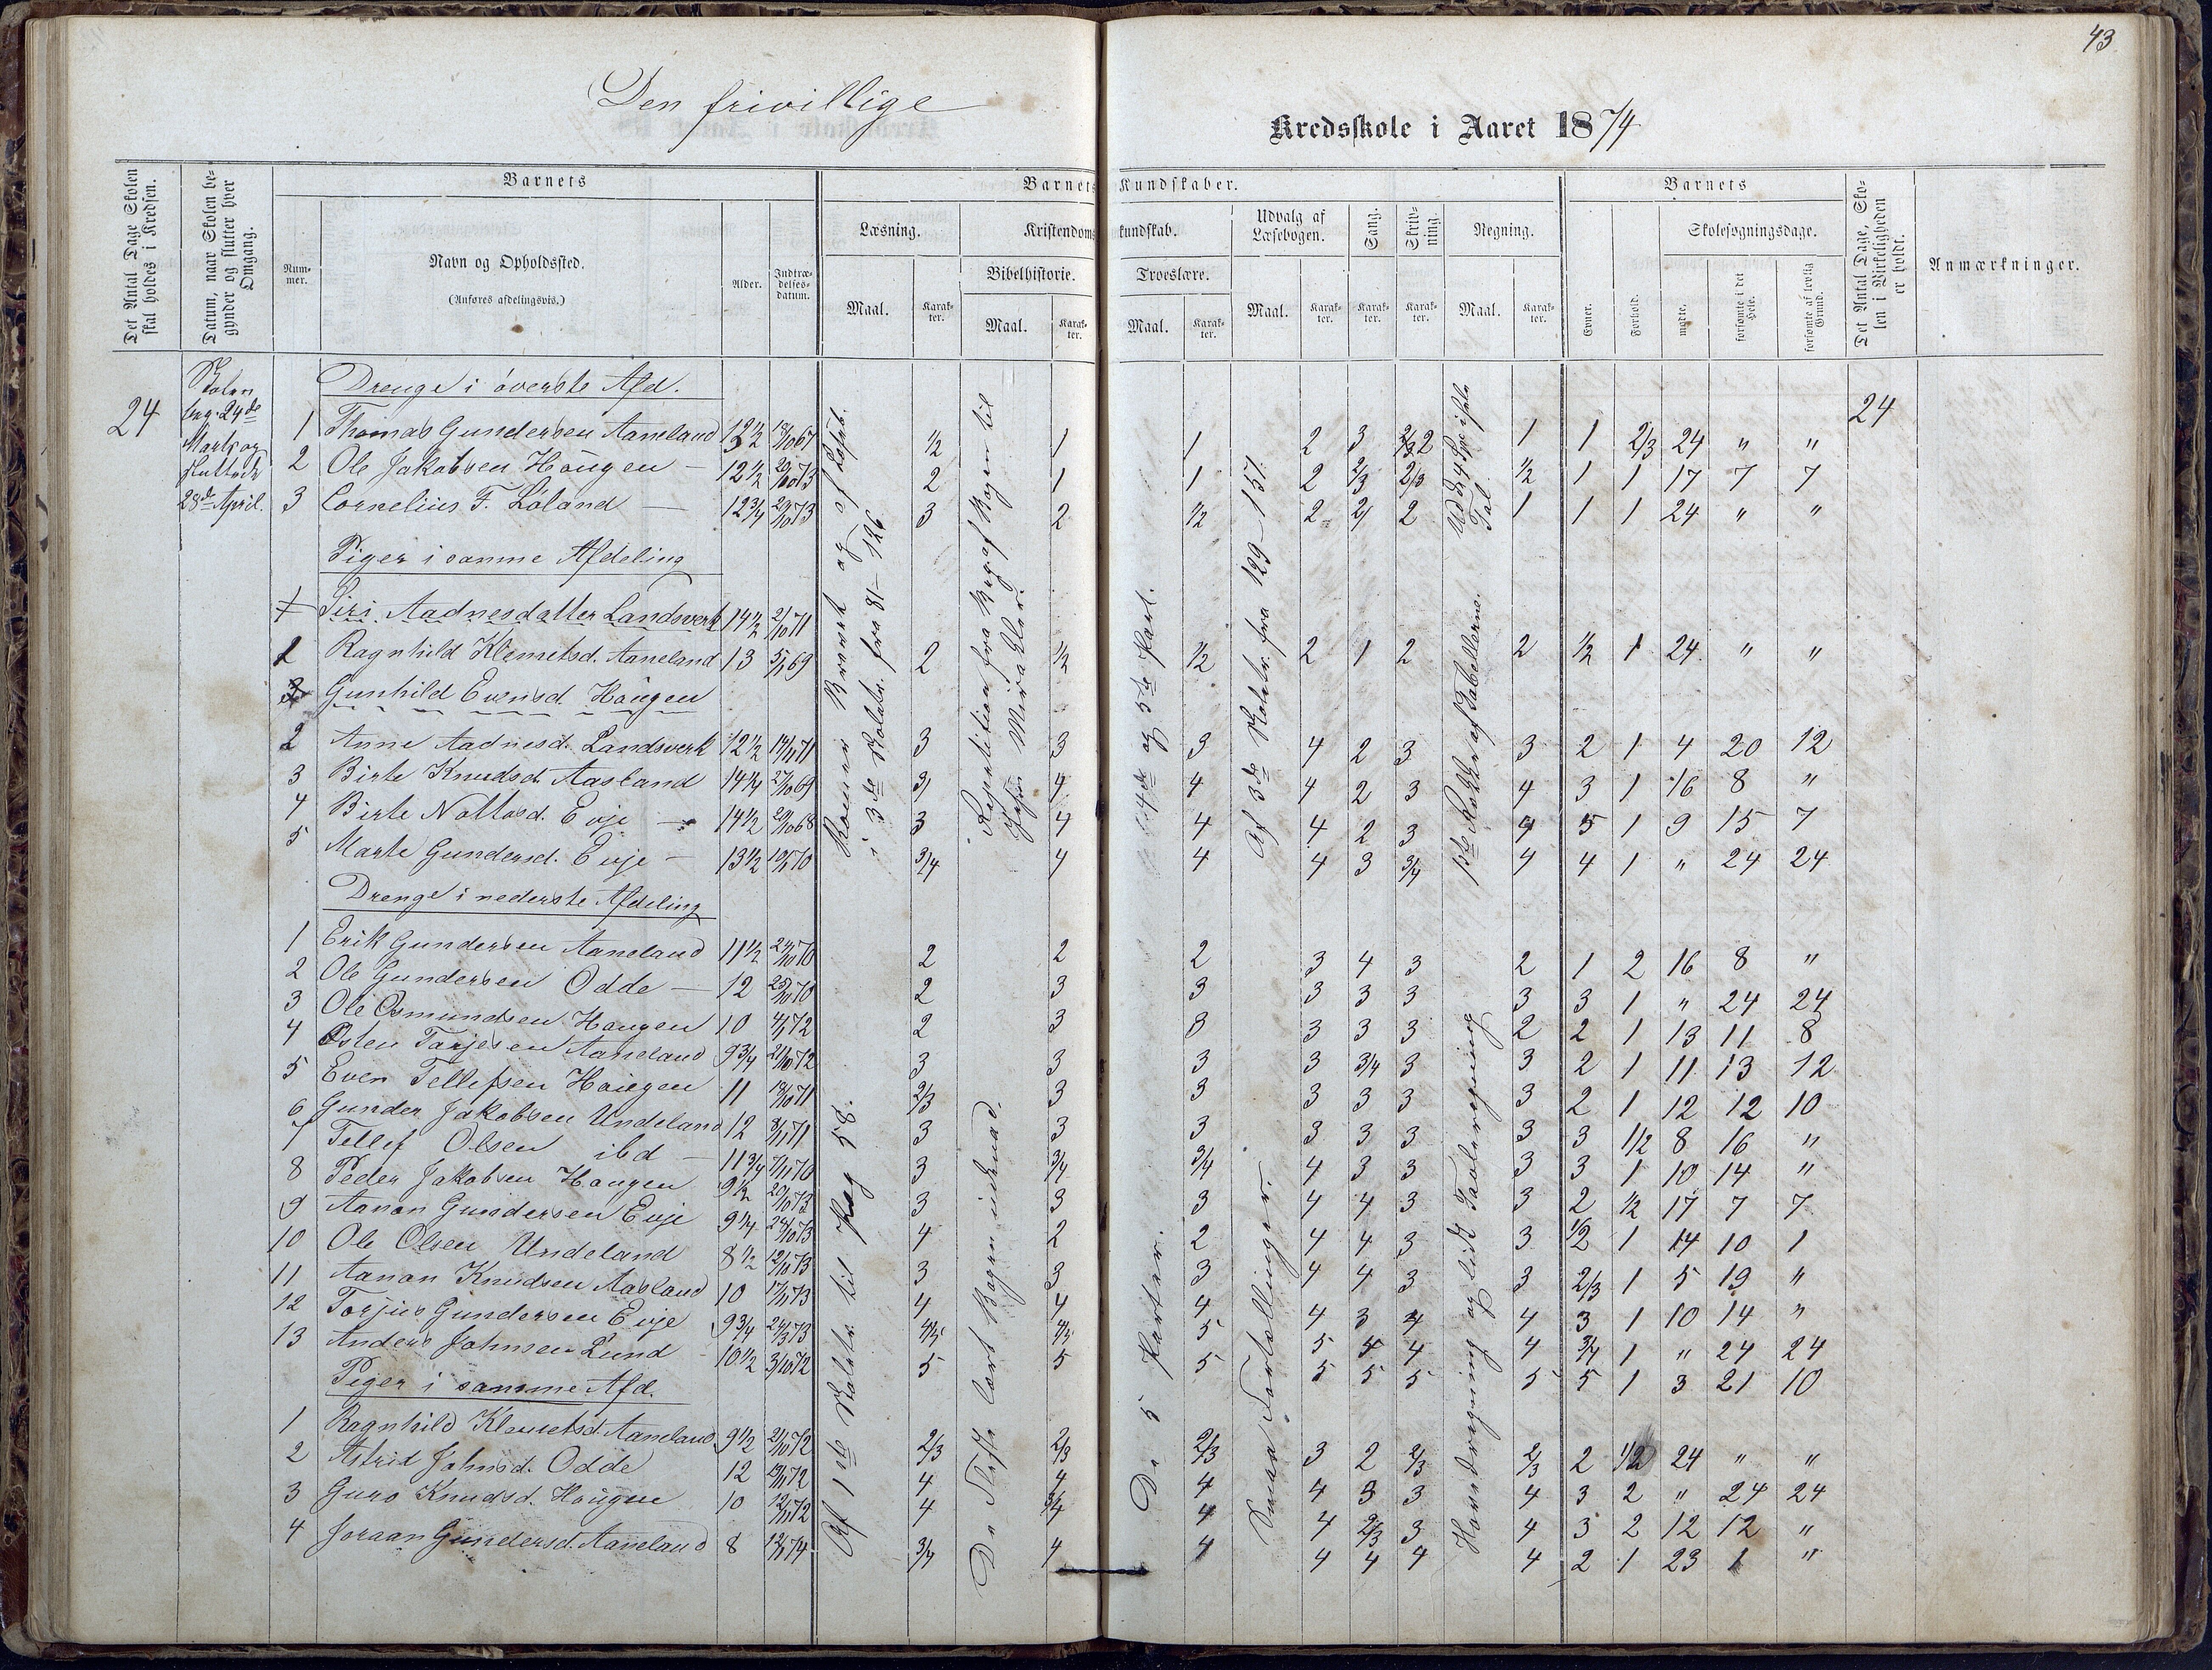 43
Den frivillige
Kredsskole i Aaret 1874
Det Antal Dage Skolen skal holdes i Kredsen.
Datum, naar Skolen begynder og slutter hver Omgang.
Barnets
Nummer.
Navn og Opholdssted.
(Anføres afdelingsvis.)
Alder.
Indtrædelses-datum.
Barnets Kundskaber.
Læsning.
Maal.
Karakter.
Kristendomskundskab.
Bibelhistorie.
Maal.
Karakter.
Troeslære.
Maal.
Karakter.
Udvalg af Læsebogen.
Maal.
Karakter.
Sang.
Karakter.
Skrivning.
Karakter.
Regning.
Maal.
Karakter.
Barnets
Evner.
Forhold.
Skolesøgningsdage.
mødte.
forsømte i det Hele.
forsømte af lovlig Grund.
Det Antal Dage, Skolen i Virkeligheden er holdt.
Anmærkninger.
24
Skolen
beg. 24de
Marts og
sluttede
28de April.
24
Drenge i øverste Afd.
1 Thomas Gundersen Aaneland 12½ 18/10 67 ½ 1 1 2 3 2 1 1 2/3 24 " "
2 Ole Jakobsen Haugen — 12½ 20/10 73 2 1 1 2 2/3 2/3 ½ 1 1 17 7 7
3 Cornelius F. Løland — 12¾ 20/10 73 3 2 ½ 2 2 2 1 1 1 24 " "
Piger i samme Afdeling
1 Siri Aadnesdatter Landsverk 14½ 2/10 71
1 Ragnhild Klemetsd. Aaneland 13 5/1 69 2 ½ ½ 2 1 2 2 ½ 1 24 " "
Gunhild Evensd. Haugen
2 Anne Aadnesd. Landsverk 12½ 14/11 71 3 3 3 4 2 3 3 2 1 4 20 12
3 Birte Knudsd. Aasland 14¼ 27/10 69 3 4 4 4 2 3 4 3 1 16 8 "
4 Birte Nottosd. Evje — 14½ 20/10 68 3 4 4 4 2 3 4 5 1 9 15 7
5 Marte Gundersd. Evje — 13½ 10/1 70 3/4 4 4 4 3 3/4 4 4 1 " 24 24
Drenge i nederste Afdeling
1 Erik Gundersen Aaneland 11½ 24/10 70 2 2 2 3 4 3 2 1 2 16 8 "
2 Ole Gundersen Odde — 12 25/10 70 2 3 3 3 3 3 3 3 1 " 24 24
3 Ole Osmundsen Haugen 10 4/1 72 2 3 3 3 3 3 2 2 1 13 11 8
4 Osten Tarjesen Aaneland 9¾ 21/10 72 3 3 3 3 3/4 3 3 2 1 11 13 12
5 Even Tellefsen Haugen 11 13/10 71 2/3 3 3 3 3 3 3 2 1 12 12 10
6 Gunder Jakobsen Undeland 12 8/11 71 3 3 3 3 3 3 3 3 1/2 8 16 "
7 Tellef Olsen ibd — 11¾ 7/11 70 3 3/4 3/4 4 3 3 3 3 1 10 14 "
8 Peder Jakobsen Haugen 9½ 20/10 73 3 3 3 4 4 3 3 2 ½ 17 7 7
9 Aanon Gundersen Evje 9¼ 24/10 73 4 2 2 4 4 3 3 1/2 1 14 10 1
10 Ole Olsen Undeland 8½ 12/10 73 3 3 3 4 4 3 3 2/3 1 5 19 "
11 Aanon Knudsen Aasland 10 17/11 73 4 4 4 4 3 4 4 3 1 10 14 "
12 Torjus Gundersen Evje 9¾ 24/3 73 4/5 4/5 5 5 4 4 4 3/4 1 " 24 24
13 Anders Johnsen Lund 10½ 3/10 72 5 5 5 5 5 5 5 5 1 3 21 10
Piger i samme Afd.
1 Ragnhild Klemetsd. Aaneland 9½ 21/10 72 2/3 2/3 2/3 3 2 2/3 2/3 2 1/2 24 " "
2 Astrid Johnsd. Odde 12 19/11 72 4 4 4 4 3 3 4 3 2 " 24 24
3 Guro Knudsd. Haugen 10 12/11 72 4 3/4 4 4 2/3 3 4 3 2 12 12 "
4 Joraan Gundersd. Aaneland 8 12/1 74 3/4 4 4 4 4 4 4 2 1 23 1 "
i 3de Skoletr. fra 81—126
Af 1ste Skoletr. til Pag 58.
Repetition fra Beg. af Bogen til
De fleste lært Bogen udenad.
4de og 5te Part.
De 5 Parter.
Af 3de Skoletr. fra 129—151.
Smaa Fortellinger.
1ste Række af Tabellerne.
Hovedregning og lidt Tavleregning